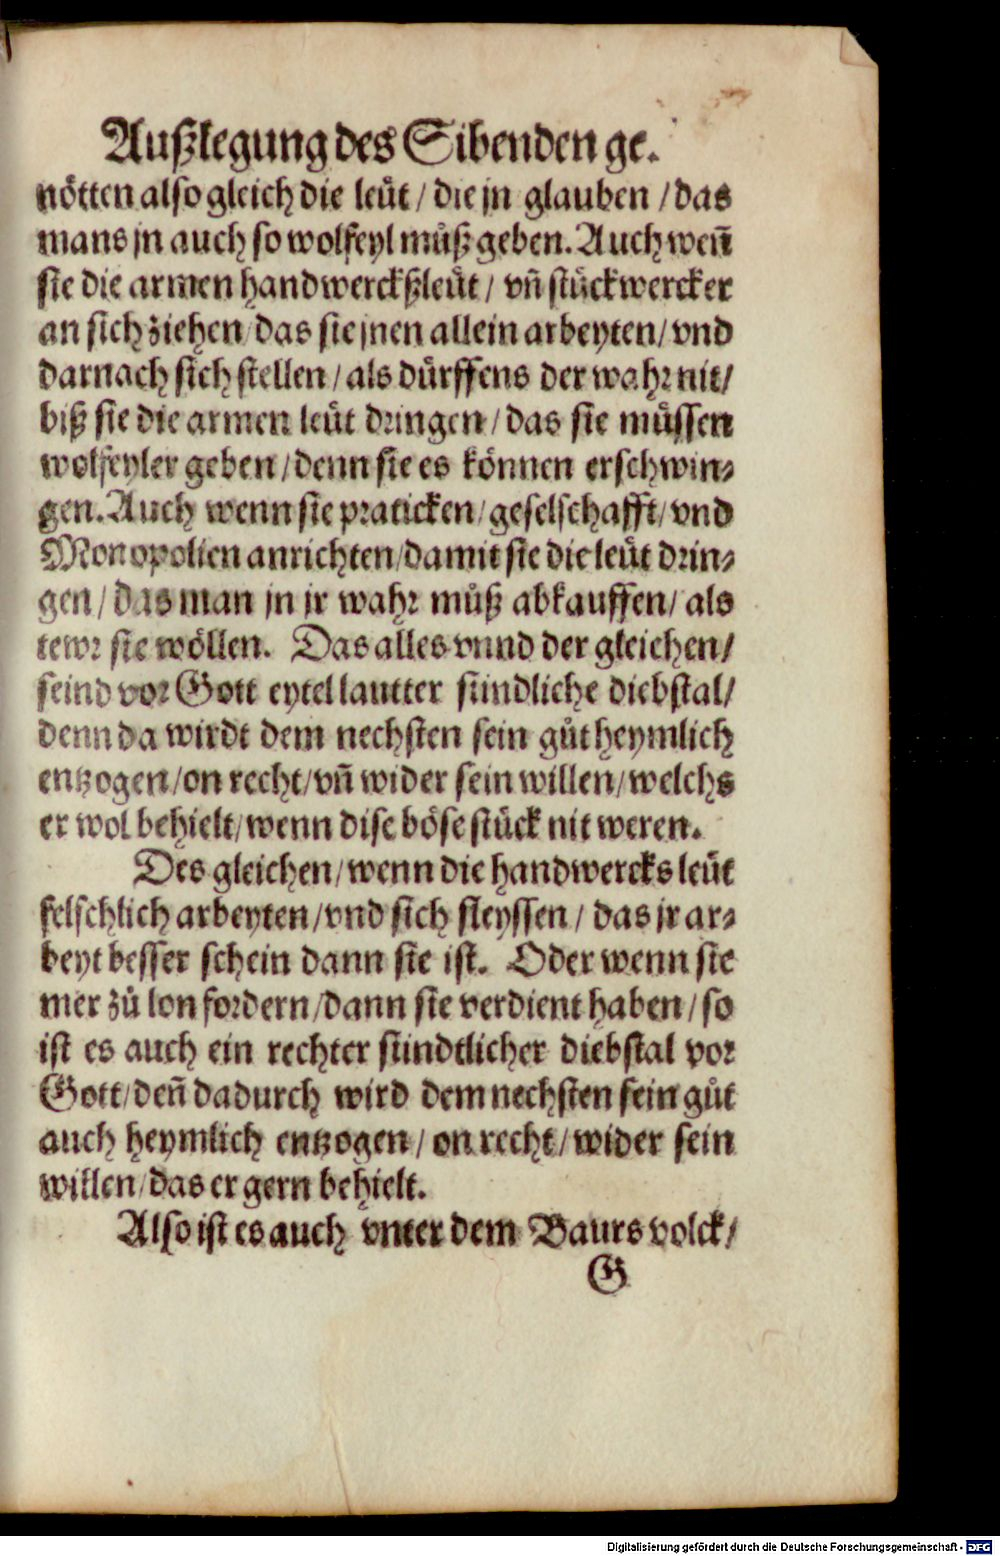 Außlegung des Sibenden ge.
nötten also gleich die leüt / die jn glauben / das
mans jn auch so wolfeyl můß geben. Auch weñ
sie die armen handwerckßleüt / vñ stückwercker
an sich ziehen / das sie jnen allein arbeyten / vnd
darnach sich stellen / als dürffens der wahr nit /
biß sie die armen leüt dringen / das sie müssen
wolfeyler geben / denn sie es können erschwin⸗
gen. Auch wenn sie praticken / geselschafft / vnd
Monopolien anrichten / damit sie die leüt drin⸗
gen / das man jn jr wahr můß abkauffen / als
tewr sie wöllen. Das alles vnnd der gleichen /
seind vor Gott eytel lautter sündliche diebstal /
denn da wirdt dem nechsten sein gůt heymlich
entzogen / on recht / vñ wider sein willen / welchs
er wol behielt / wenn dise böse stück nit weren.
Des gleichen / wenn die handwercks leüt
felschlich arbeyten / vnd sich fleyssen / das jr ar⸗
beyt besser schein dann sie ist. Oder wenn sie
mer zů lon fordern / dann sie verdient haben / so
ist es auch ein rechter sündtlicher diebstal vor
Gott / deñ dadurch wird dem nechsten sein gůt
auch heymlich entzogen / on recht / wider sein
willen / das er gern behielt.
Also ist es auch vnter dem Baurs volck /
G
Digitalisierung gefördert durch die Deutsche Forschungsgemeinschaft - DFG